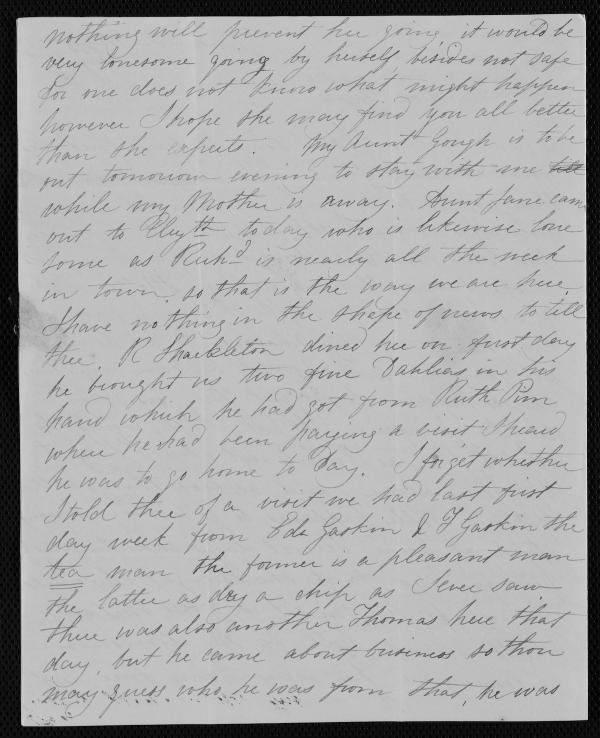 nothing will prevent her going it would be
very lonesome going by herself besides not safe
for one does not know what might happen
however I hope she may find you all better
than she expects. My Aunt Gough is to be
out tomorrow evening to stay with me till
while my Mother is away. Aunt Jane came
out to today who is likewise lone
some as Richd is nearly all the week
in town, so that is the way we are here.
I have nothing in the shape of news to tell
thee. R Shackleton dined here on first day
he brought us two fine Dahlias in his
hand which he had got from Ruth Pim
where he had been paying a visit I heard
he was to go home to Day. I forget whether
I told thee of a visit we had last first
day week from Edd Gaskin & T Gaskin the
tea man the former is a pleasant man
the latter as dry a chip as I ever saw
there was also another Thomas here that
day, but he came about business so thou
may guess who he was from that, he was